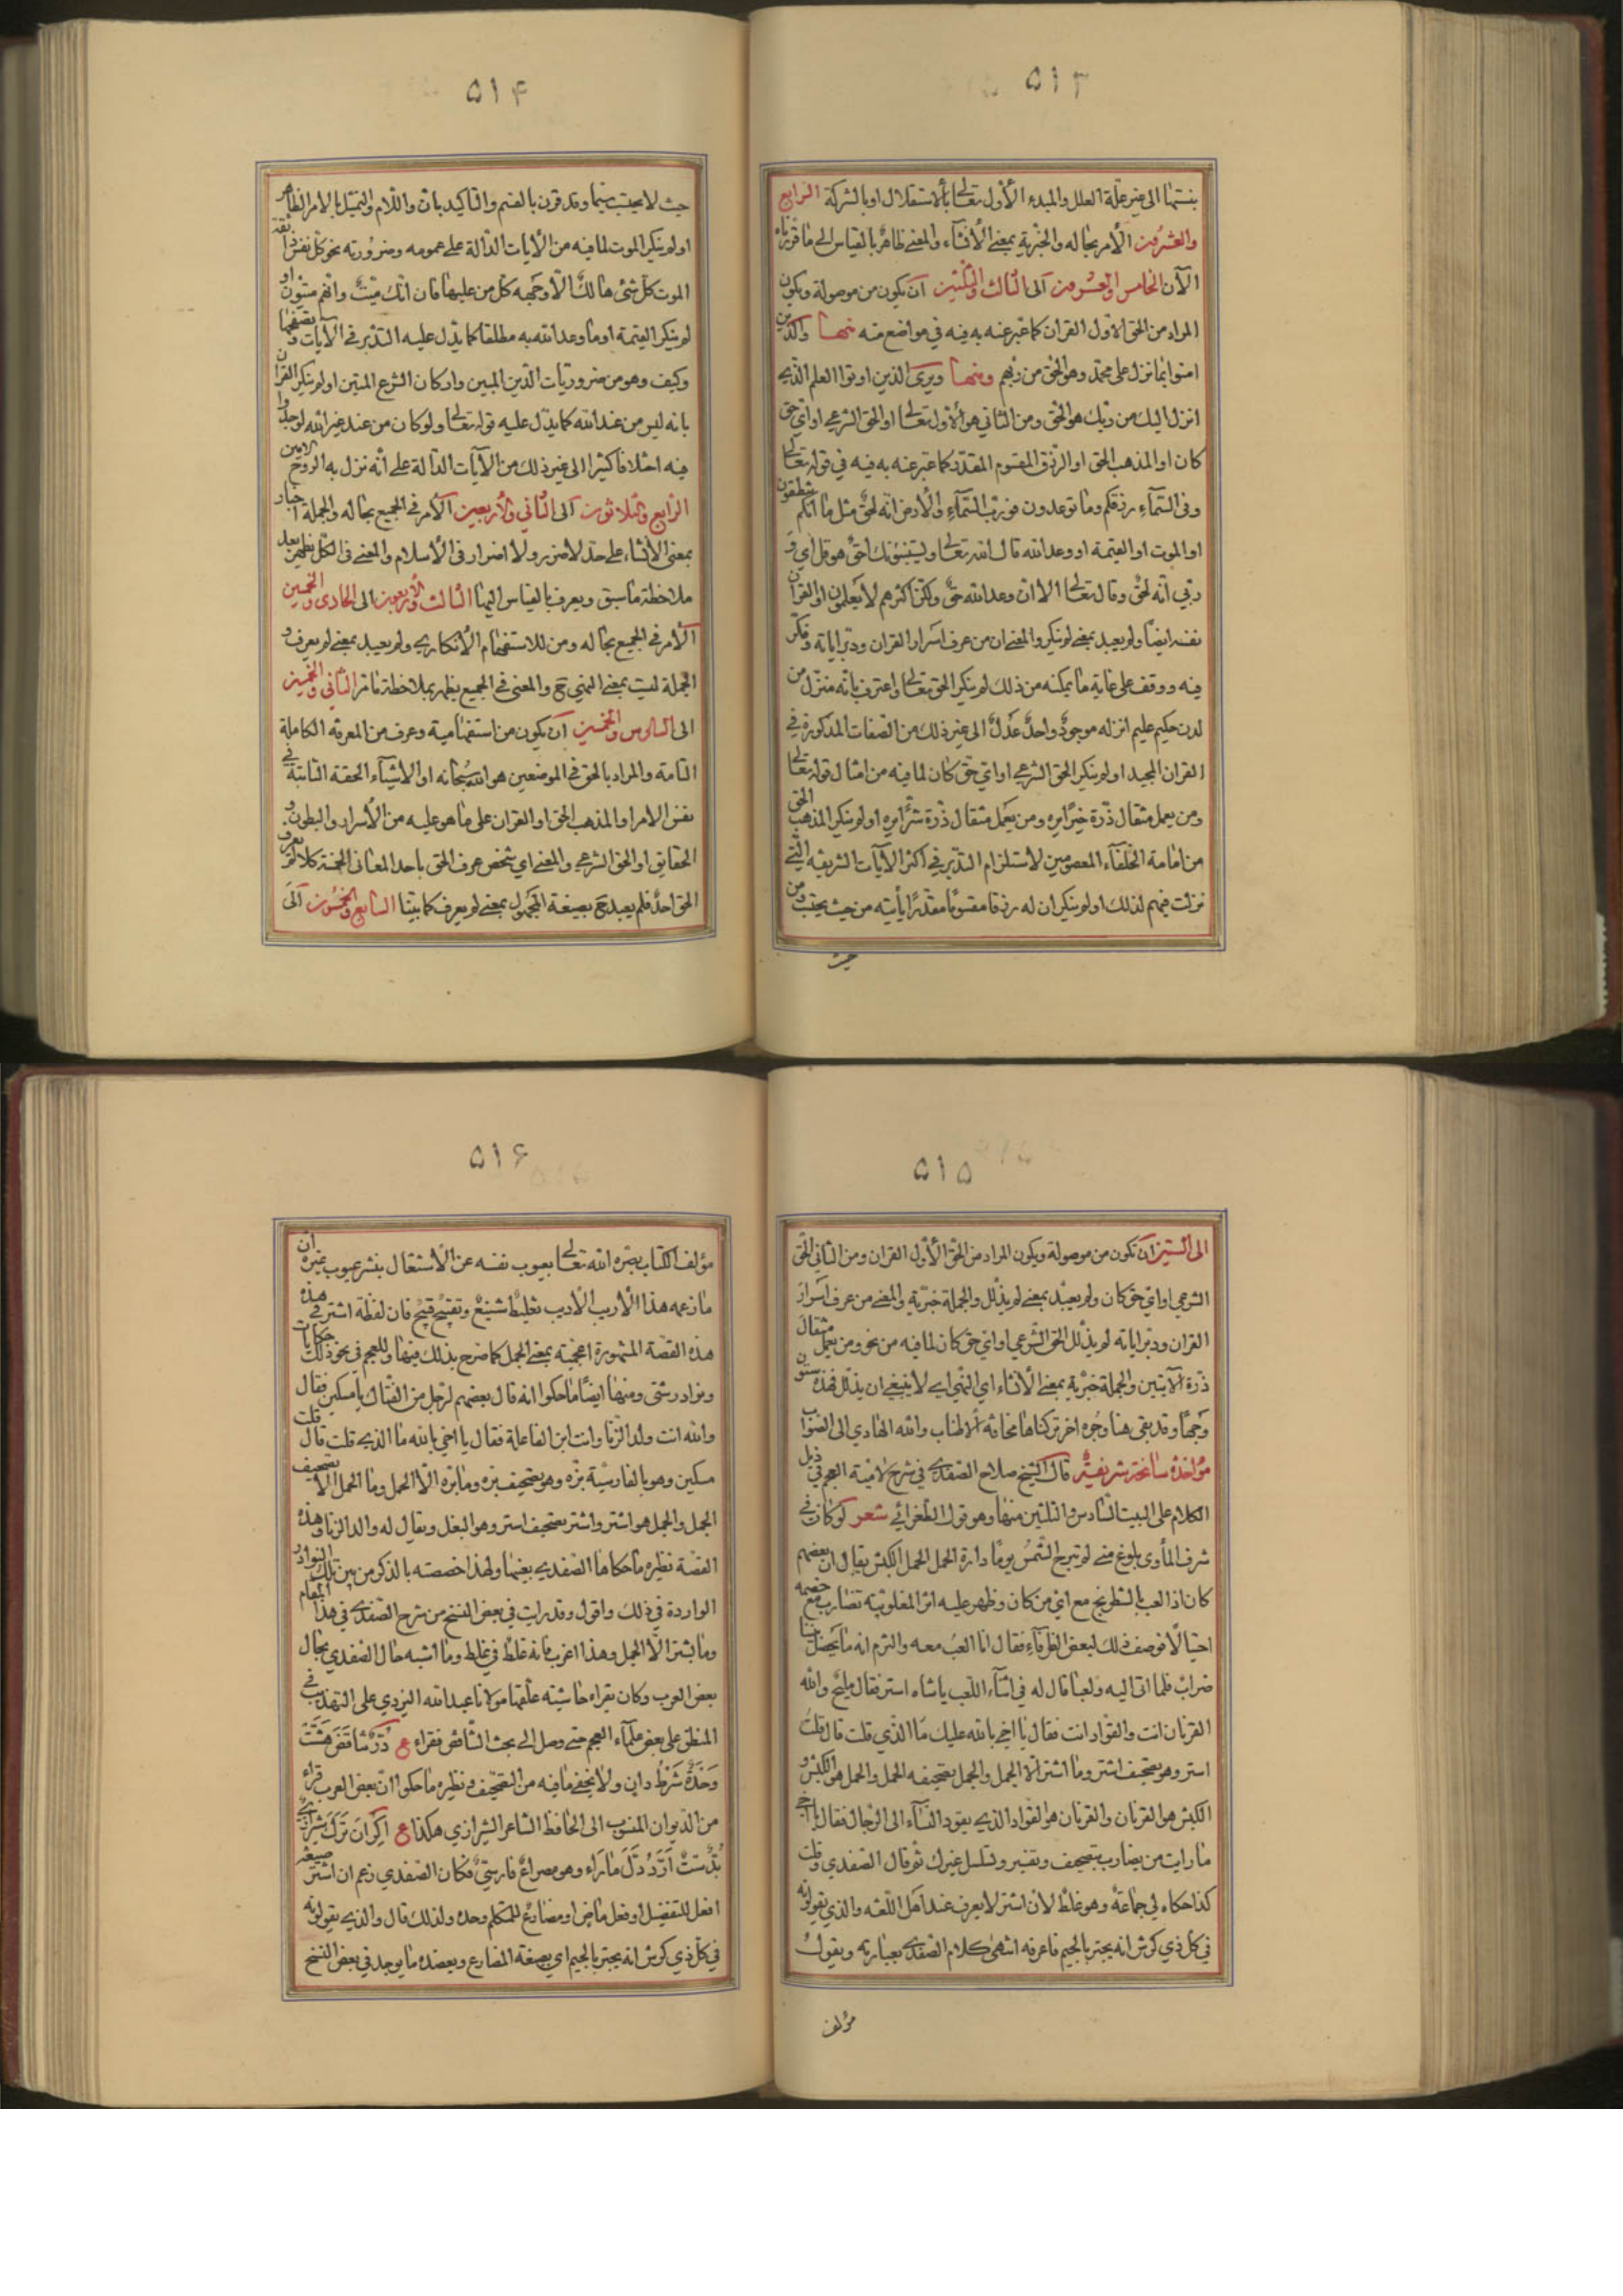 ٥١٣
بنسبتها الى غير علّة العلل والمبدء الأوّل تعالى بالاستقلال او بالشركة الرابع
والعشرون الأمر بحاله والخبرية بمعنى الأنشاء والمعنى ظاهر بالقياس الى ما قررناه
الآن الخامس والعشرون الى الثالث والثلثين ان يكون من موصولة ويكون
المراد من الحق الاوّل القران كما عبّر عنه به فيه في مواضع منه منها والذين
امنوا بما نزل على محمّد وهو الحق من ربّهم ومنها ويرى الذين اوتوا العلم الذي
انزل اليك من ربك هو الحق ومن الثاني هو الأوّل تعالى او الحق الشرعي او اي حق
كان او المذهب الحق او الرزق المقسوم المقدّر كما عبّر عنه به فيه في قوله تعالى
وفى السّماء رزقكم وما توعدون فورب السّماء والأرض انّه لحقّ مثل ما انّكم تنطقون
او الموت او القيمة او وعد الله قال الله تعالى ويستنبؤنك احقّ هو قل اي و
ربّي انّه لحقّ وقال تعالى الا ان وعد الله حقّ ولكنّ اكثرهم لا يعلمون او القران
نفسه ايضًا ولم يعبد بمعنى لم ينكر والمعنى ان من عرف اسرار القران ودبّر اياته وفكّر
فيه ووقف على غاية ما يمكنه من ذلك لم ينكر الحق تعالى واعترف بانّه منزل من
لدن حكيم عليم انزله موجودٌ واحدٌ عدلٌ الى غير ذلك من الصّفات المذكورة في
القران المجيد او لم ينكر الحق الشرعي او اي حقّ كان لما فيه من امثال قوله تعالى
ومن يعمل مثقال ذرّة خيرًا يره ومن يعمل مثقال ذرّة شرًّا يره او لم ينكر المذهب الحق
من امامة الخلفاء المعصومين لاستلزام التدبّر في اكثر الآيات الشريفه التي
نزلت فيهم لذلك او لم ينكر ان له رزقا مقسومًا مقدّرًا يأتيه من حيث يحتسب ومن
حيث
٥١٤
حيث لا يحتسب سيّما وقد قرن بالقسم والتاكيد بان واللّام والتمثيل بالامر الظاهر
او لم ينكر الموت لما فيه من الأيات الدّالة على عمومه وضروريته نحو كلّ نفس ذائقة
الموت كلّ شئ هالكٌ الّا وجهه كلّ من عليها فان انّك ميّتٌ وانّهم ميّتون او
لم ينكر القيمة او ما وعد الله به مطلقا كما يدلّ عليه التدبّر في الآيات وتصفحها
وكيف وهو من ضروريّات الدّين المبين واركان الشرع المتين او لم ينكر القران
بانه ليس من عند الله كما يدلّ عليه قوله تعالى ولو كان من عند غير الله لوجدوا
فيه اختلافا كثيرا الى غير ذلك من الآيات الدّالة على انّه نزل به الرّوح الامين
الرّابع والثلاثون الى الثاني والأربعين الأمر في الجميع بحاله والجملة اخبار
بمعنى الأنشاء على حدّ لا ضرر ولا اضرار فى الأسلام والمعنى فى الكلّ يظهر بعد
ملاحظة ما سبق ويعرف بالقياس اليها الثالث والأربعون الى الحادى والخمسين
الأمر في الجميع بحاله ومن للاستفهام الأنكاري ولم يعبد بمعنى لم يعرف و
الجملة ليست بمعنى النهى ح والمعنى فى الجميع يظهر بملاحظة ما مرّ الثّاني والخمسين
الى السّادس والخمسين ان يكون من استفهاميّة وعرف من المعرفة الكاملة
التامة والمراد بالحق في الموضعين هو الله سبحانه او الاشياء الحقة الثابتة في
نفس الامر او المذهب الحق او القران على ما هو عليه من الأسرار والبطون و
الحقايق او الحق الشرعي والمعنى اي شخص عرف الحق باحد المعانى الخمسة كلا لم يعرف
الحق احدٌ فلم يعبد ح بصيغة المجهول بمعنى لم يعرف كما بيّنا السّابع والخمسون الى
٥١٥
الى الستين ان تكون من موصولة ويكون المراد من الحق الأوّل القران ومن الثاني الحق
الشرعي او اي حق كان ولم يعبّد بمعنى لم يذلّل والجملة خبريّة والمعنى من عرف اسرار
القران ودبّر اياته لم يذلّل الحق الشّرعي او اي حق كان لما فيه من نحو ومن يعمل مثقال
ذرّة الآيتين والجملة خبريّة بمعنى الأنشاء اي النهى اي لا ينبغي ان يذلّل فهذه ستون
وجهًا وقد بقي هنا وجوه اخر تركناها مخافة الأطناب والله الهادي الى الصّواب
مؤاخذة سانحة شريفة قال الشّيخ صلاح الصّفدي في شرح لاميّة العجم في ذيل
الكلام على البيت السّادس والثلثين منها وهو قول الطّغرائي شعر لو كان في
شرف المأوى بلوغ منى لم تبرح الشّمس يومًا دارة الحمل الحمل الكبش يقال ان بعضهم
كان اذا لعب بالشّطرنج مع اي من كان وظهر عليه اثر المغلوبيّة تضارب مع خصمه
احتيالًا فوصف ذلك لبعض الظّرفاء فقال انا العب معه والتزم انه ما يحصل بيننا
ضرابٌ فلما اتى اليه ولعبا قال له في اثناء اللّعب يا شاه استر فقال مليحٌ والله
القرنان انت والقوّاد انت فقال يا اخي بالله عليك ما الذي قلت قال قلت
استر وهو تصحيف اشتر وما اشتر الّا الجمل والجمل تصحيفه الحمل والحمل هو الكبش و
الكبش هو القرنان والقرنان هو القوّاد الذي يقود النّساء الى الرّجال فقال يا اخي
ما رايت من يضارب بتصحيف وتفسير وتسلسل غيرك ثم قال الصّفدي وقلت
كذا حكاه لي جماعةٌ وهو غلطٌ لانّ اشتر لا يعرف عند اهل اللّغه والذي يقولونه
في كلّ ذي كرش انه يجتر بالجيم فاعرفه انتهى كلام الصّفدي بعبارته ويقول
مؤلف
٥١٦
مؤلف الكتاب بصّره الله تعالى بعيوب نفسه عن الأشتغال بنشر عيوب غيره ان
ما زعمه هذا الأريب الأديب تغليطٌ شنيعٌ وتقبيحٌ قبيحٌ فان لفظة اشتر في هذه
هذه القصّة المشهورة اعجميّة بمعنى الجمل كما صرّح بذلك فيها وللعجم في نحو ذلك حكايات
ونوادر شتّى ومنها ايضًا ما حكوا انه قال بعضهم لرجل من الفتّاك يا مسكين فقال
والله انت ولد الزّنا وانت ابن الفاعلة فقال يا اخي بالله ما الذي قلت قال قلت
مسكين وهو بالفارسيّة بزه وهو تصحيف بره وما بره الّا الحمل وما الحمل الّا تصحيف
الجمل والجمل هو اشتر واشتر تصحيف استر وهو البغل ويقال له والد الزّنا وهذه
القصّة نظيره ما حكاها الصّفدي بعينها ولهذا خصصته بالذكر من بين تلك النوادر
الواردة في ذلك واقول وقد رايت في بعض النسخ من شرح الصّفدي في هذا المقام
وما يشتر الّا الجمل وهذا اغرب فانه غلطٌ في غلط وما اشبه حال الصّفدي بحال
بعض العرب وكان يقراء حاشيته علّقها مولانا عبد الله اليزدي على التهذيب في
المنطق على بعض علماء العجم حتى وصل الى بحث التّناقض فقراء ع دَرْ تَنَاقض هَشْت
وَحْدَة شَرْط دان ولا يخفى ما فيه من التّصحيف ونظيره ما حكوا انّ بعض العرب قراء
من الدّيوان المنسوب الى الحافظ الشاعر الشّيرازي هكذا ع اكر ان ترك شيرازي
بدست ارد دل ما را وهو مصراعٌ فارسيٌّ فكان الصّفدي زعم ان اشتر صيغة
افعل للتفضيل او فعل ماض او مضارع للمتكلّم وحده ولذلك قال والذي يقولونه
في كلّ ذي كرش انه يجتر بالجيم اي بصيغة المضارع ويعضده ما يوجد في بعض النسخ